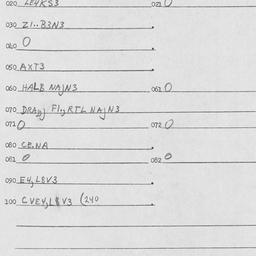 020 LE4KS3 021 0
030 Z1..B3N3
040 0
050 AXT3
060 HALB NAJN3 061 0
070 DRAJJ FI,,RTL NAJN3
071 0 072 0
080 CB.NA
081 0 082 0
090 E4,L8V3
100 CVEV,L8V3 (240